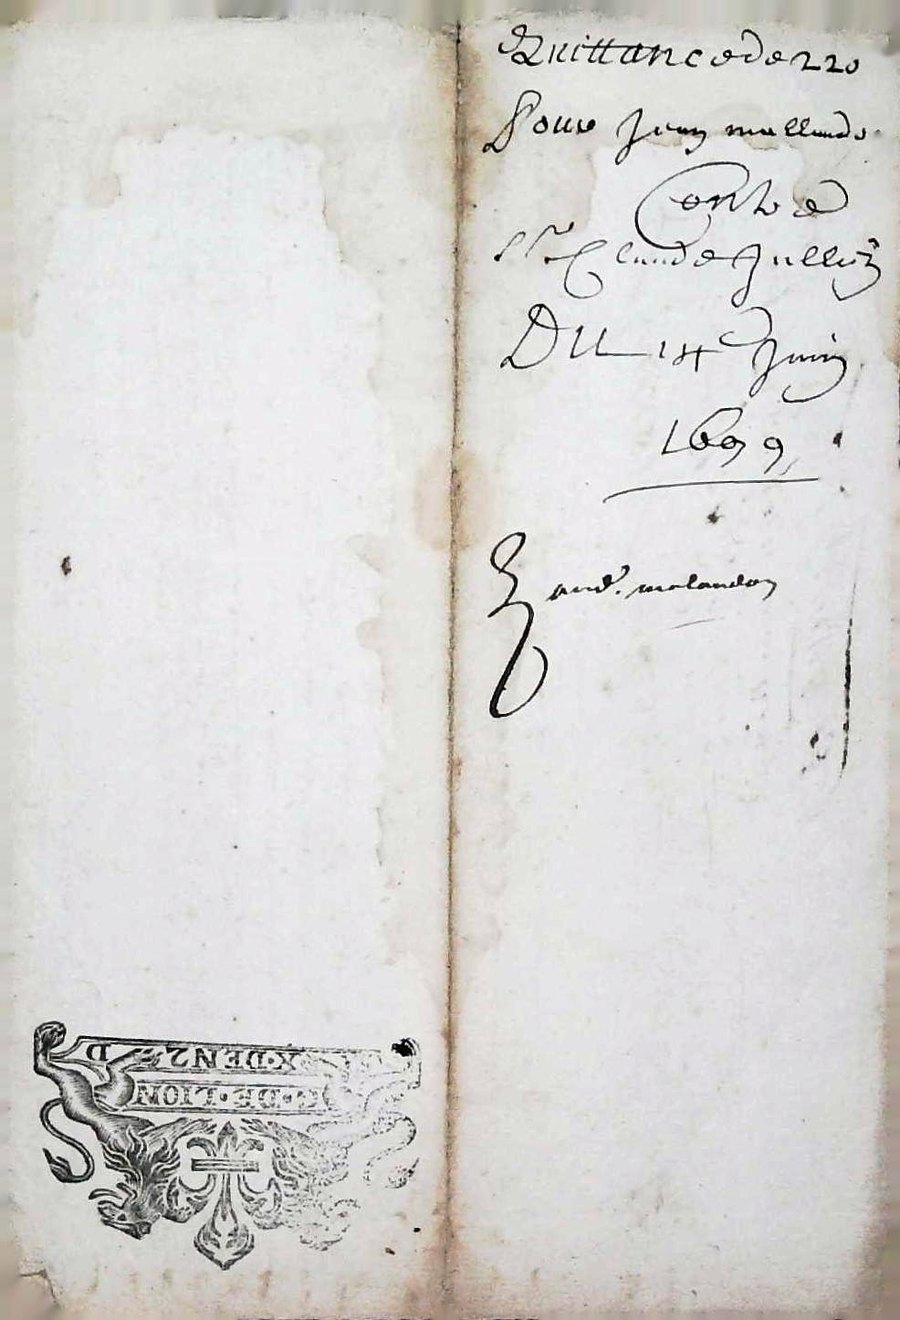 Quittance de 220
Pour Jean mallando
Contre
Sr Claude Jullien
Du 14e Juin
1699
and. malandon
G. DE. LION
X. DEN 2 D